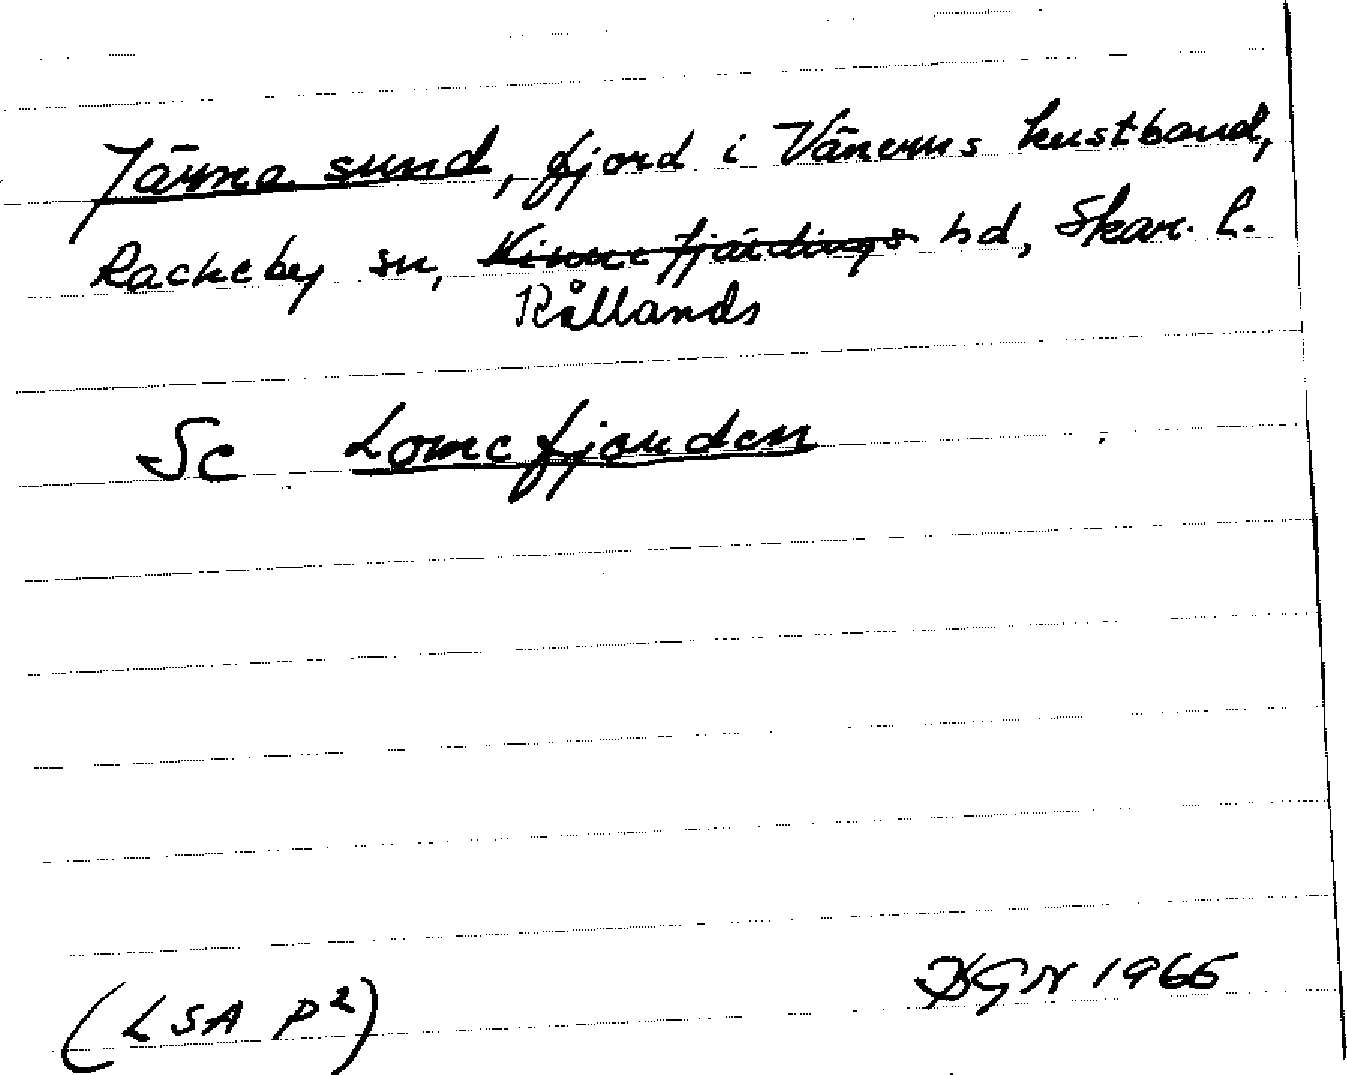 Järna sund, fjord i Vänerns kustband,
Rackeby sn, Kinnefjärdings hd, Skar. l.
Rållands
Se Lomefjorden
(LSA P²)
1966